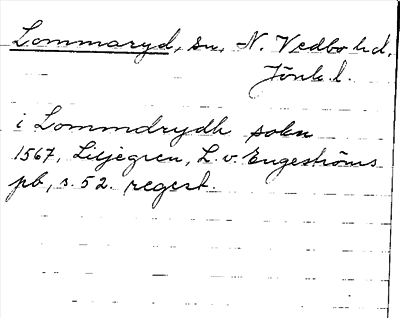 Lommaryd, sn, N. Vedbo hd,
Jönk. l.
i Lommdrydh sokn
1567, Liljegren, L. v. Engeströms
pb, s. 52. regest.